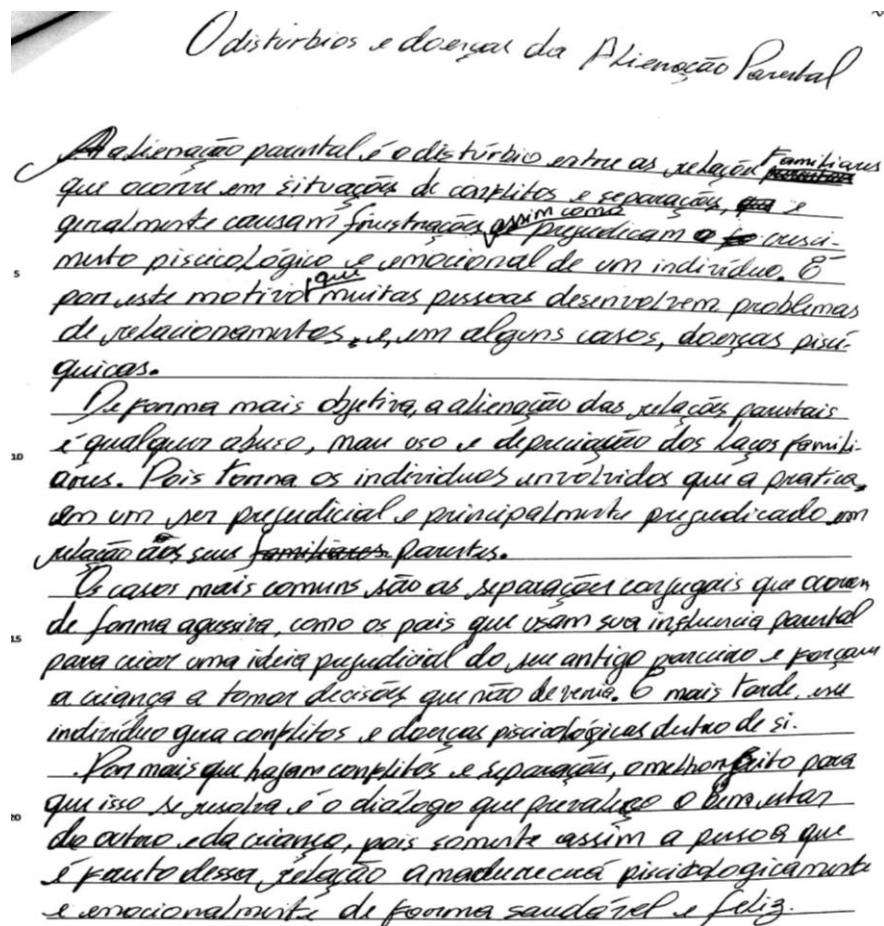 O distúrbios e doenças da Alienação Parental
A alienação parental é o distúrbio entre as relações familiares
que ocorre em situações de conflitos e separações, e
geralmente causam frustrações, assim como prejudicam o cresci-
5 mento piscicológico e emocional de um indivíduo. É
por este motivo que muitas pessoas desenvolvem problemas
de relacionamentos, e, em alguns casos, doenças pisí-
quicas.
De forma mais objetiva, a alienação das relações parentais
10 é qualquer abuso, mau uso e depreciação dos laços famili-
ares. Pois torna os individuos envolvidos que a pratica,
em um ser prejudicial e principalmente prejudicado em
relação aos seus familiares parentes.
Os casos mais comuns são as separações conjugais que ocorem
15 de forma agressiva, como os pais que usam sua influencia parental
para criar uma ideia prejudicial do seu antigo parceiro e forçam
a criança a tomar decisões que não deveria. E mais tarde, esse
indivíduo gera conflitos e doenças piscicológicas dentro de si.
Por mais que hajam conflitos e separações, o melhor jeito para
20 que isso se resolva é o diálogo que prevaleça o bem estar
do outro e da criança, pois somente assim a pessoa que
é fruto dessa relação amadurecerá piscicologicamente
e emocionalmente de forma saudável e feliz.